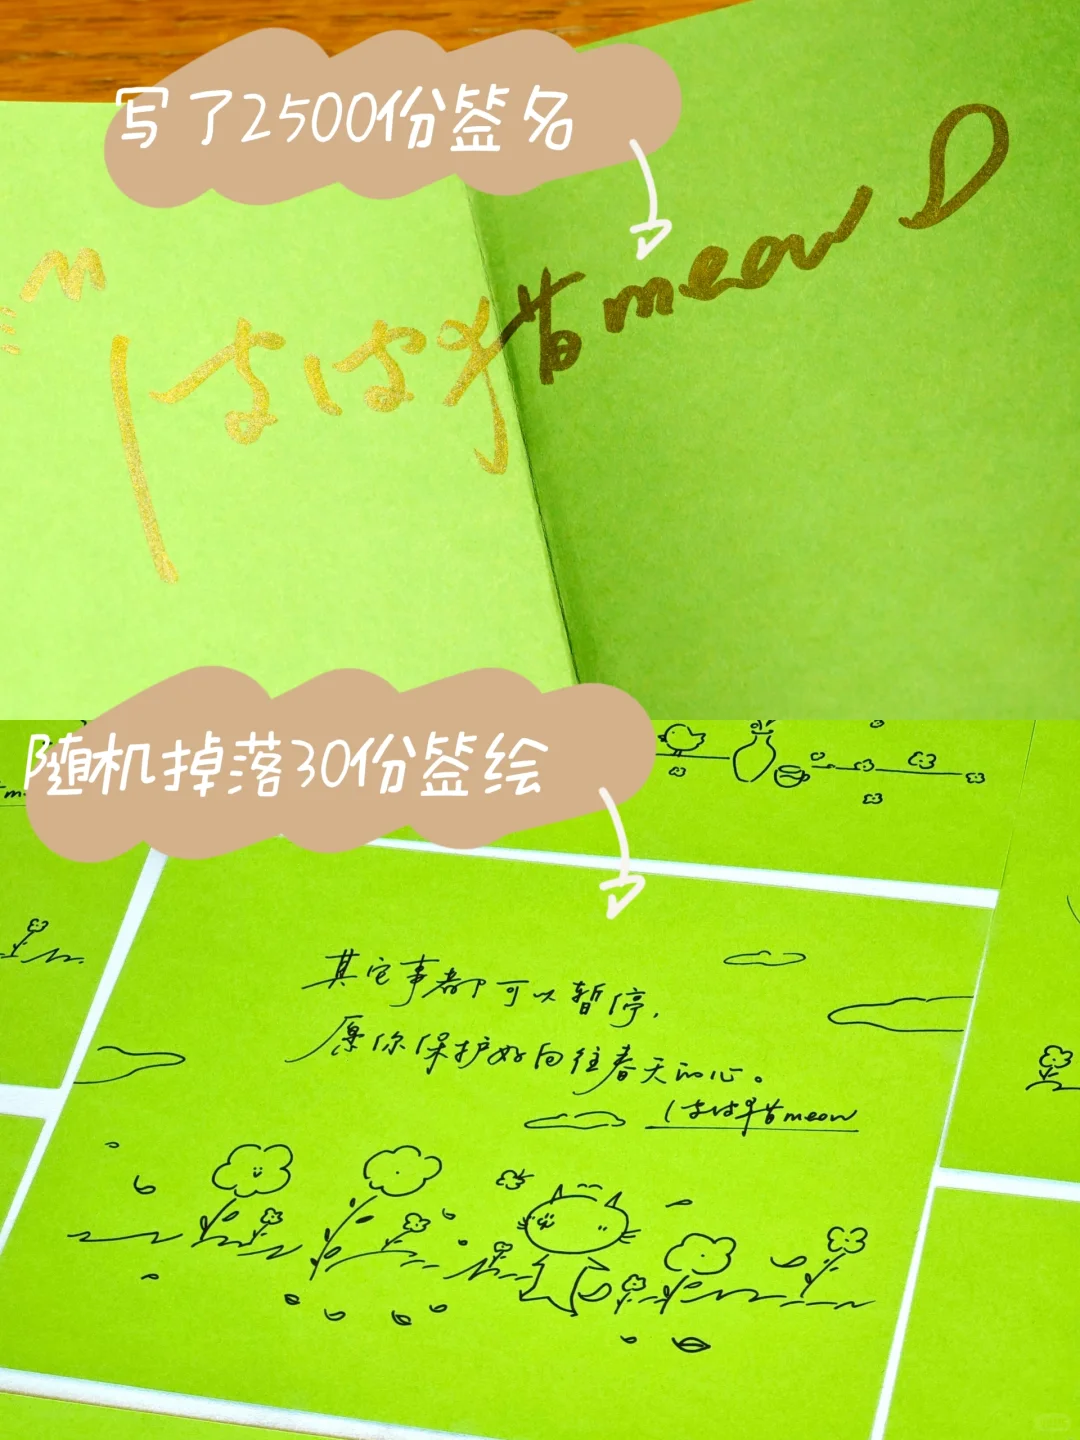 写了2500份签名
はは猫meow
随机掉落30份签绘
其它事都可以暂停,
愿你保护好向往春天的心。
はは猫meow